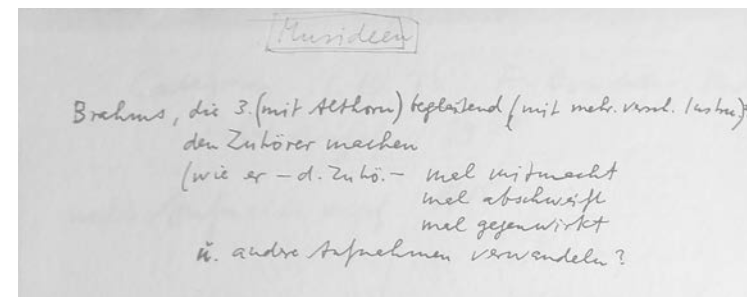 Musideen
Brahms, die 3. (mit Althorn) begleitend (mit mehr. versch. Instru)
den Zuhörer machen
(wie er – d. Zuhö. – mal mitmacht
mal abschweift
mal gegenwirkt
ü. andere Aufnahmen verwandeln?